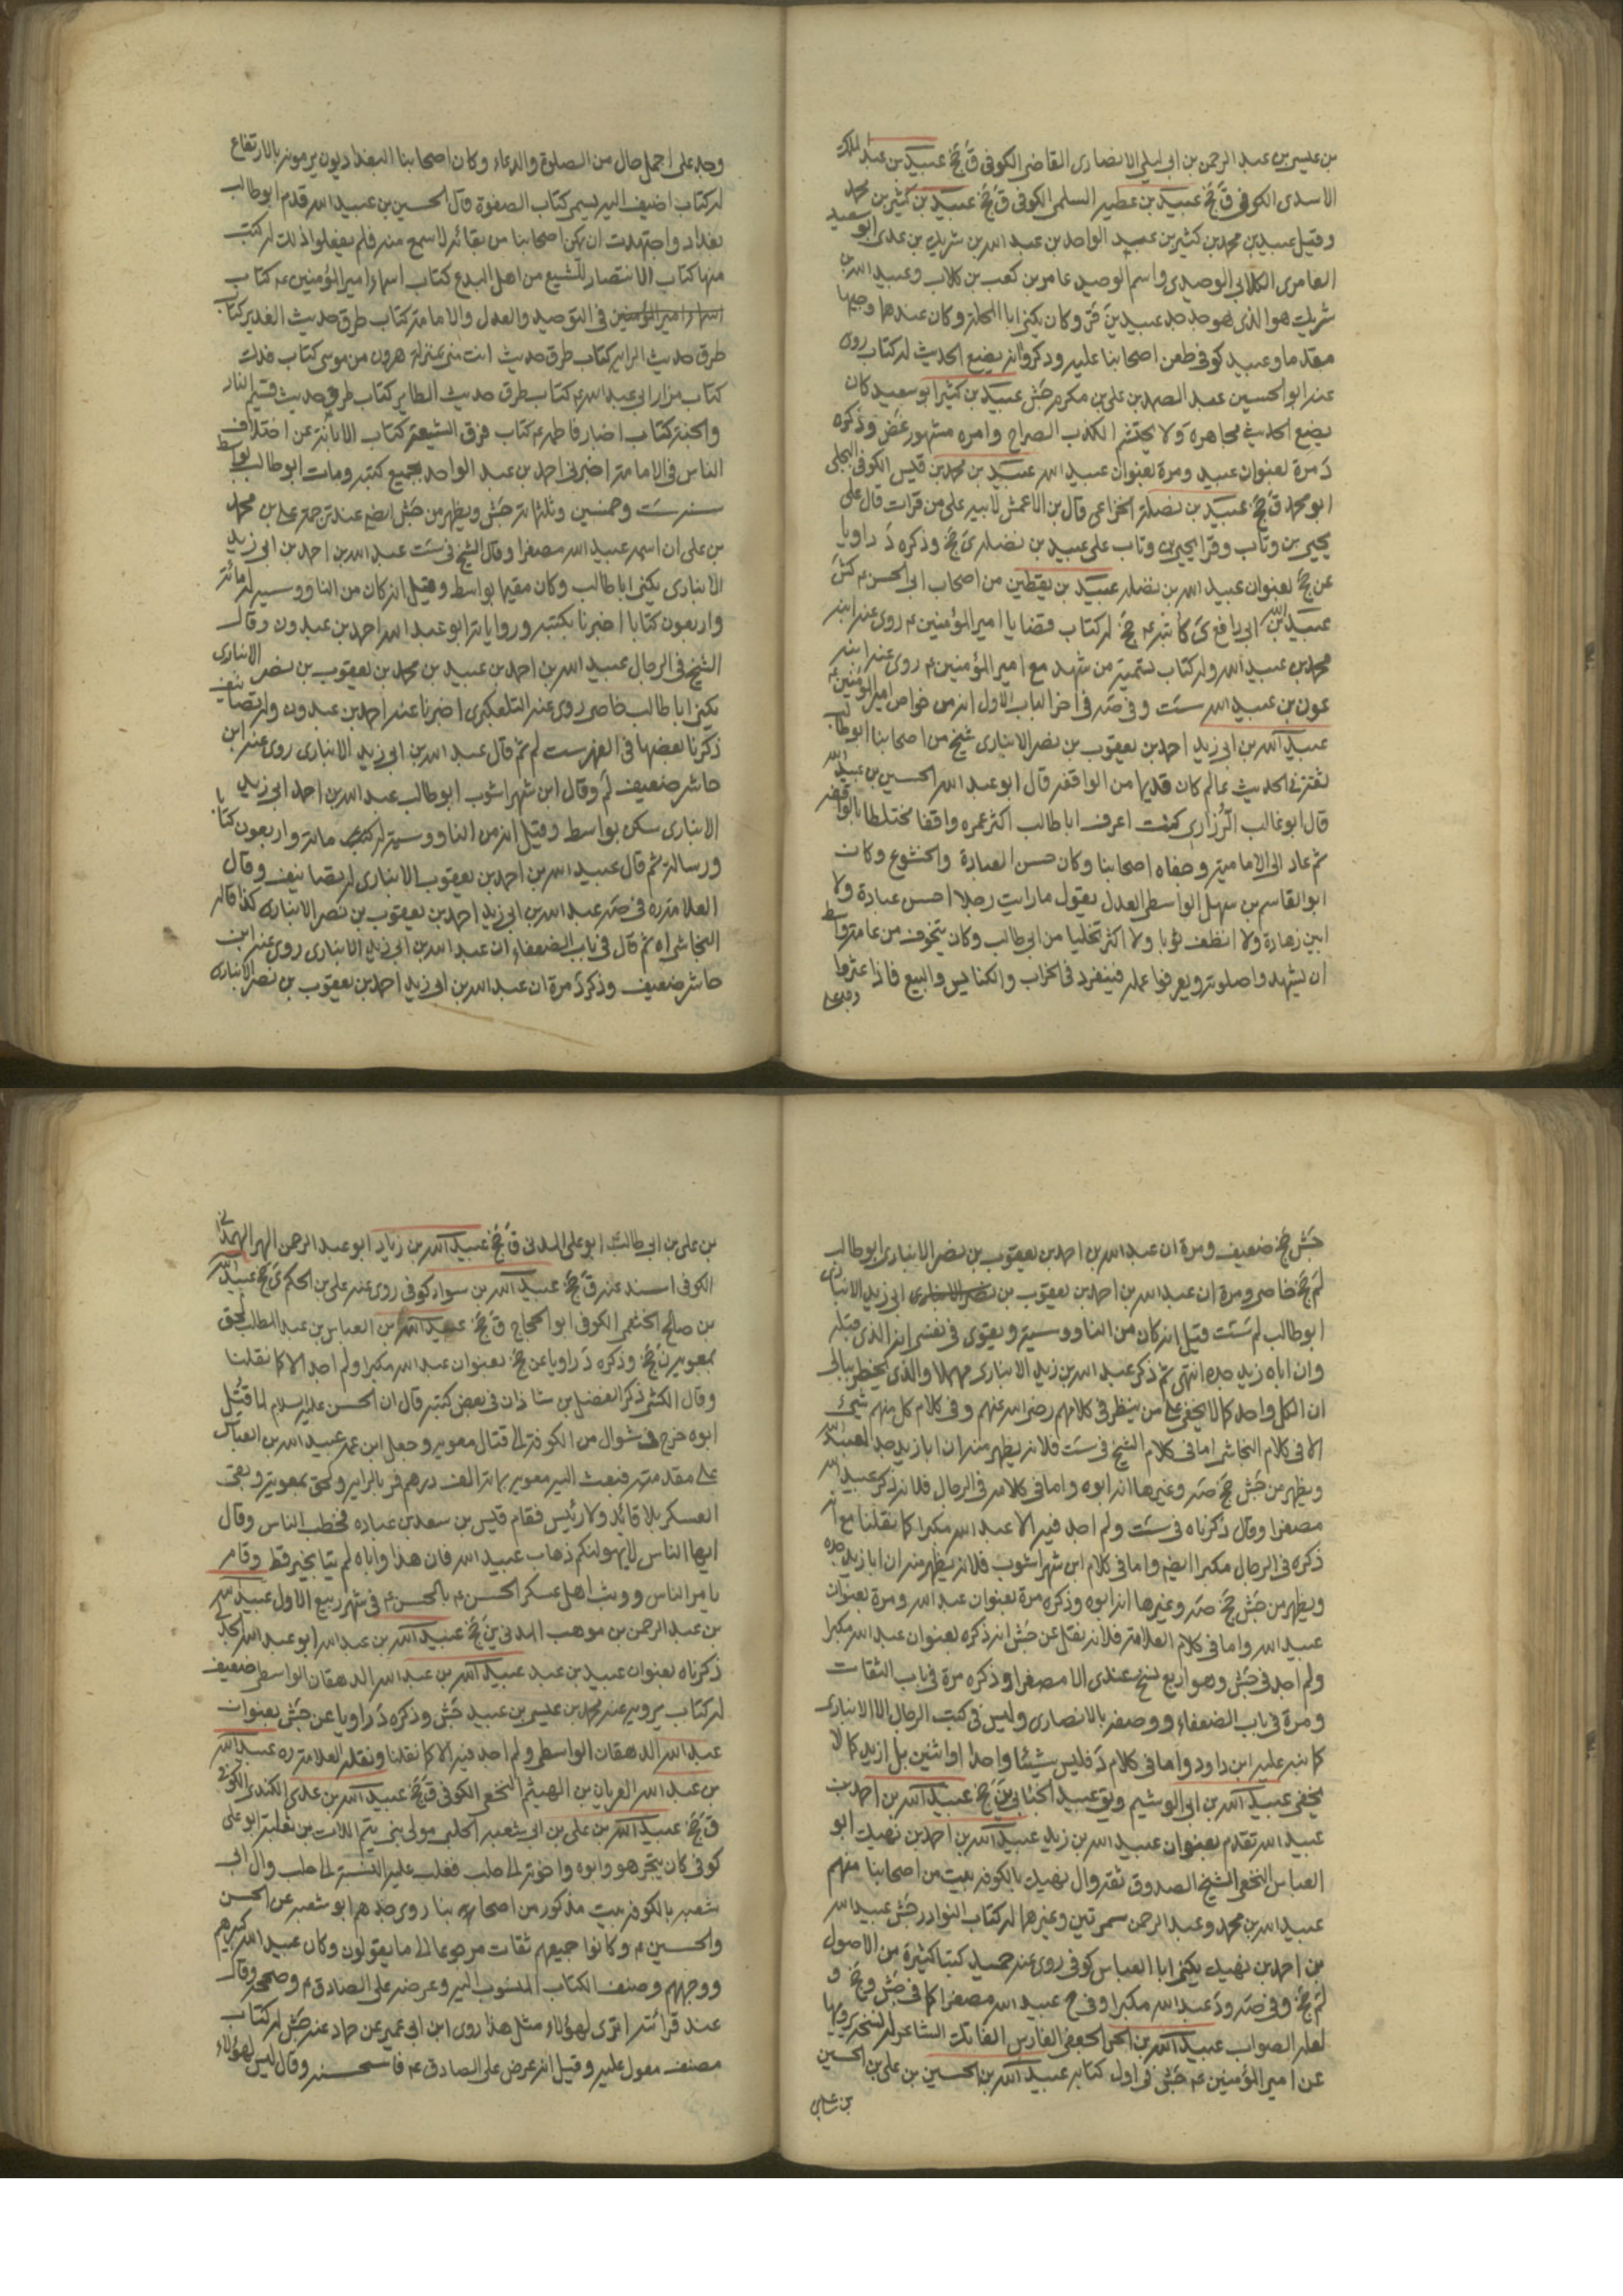 بن عيسى بن عبد الرحمن بن ابى ليلى الانصارى القاضى الكوفى ق جخ عبيد بن عبد الملك
الاسدى الكوفى ق جخ عبيد بن عطية السلمى الكوفى ق جخ عبيد بن كثير بن محمد
وقيل عبيد بن محمد بن كثير بن عبيد الواحد بن عبد الله بن شريك بن عدى ابو سعيد
العامرى الكلابى الوحيدى واسم الوحيد عامر بن كعب بن كلاب وعبيد الله بن
شريك هو الذى هو جد جد عبيد بن قر وكان يكنى ابا المحلة وكان عندهما وجيها
مقدما وعبيد كوفى طعن اصحابنا عليه وذكروا انه يضع الحديث له كتاب رواه
عنه ابو الحسين عبد الصمد بن على بن مكرم جش عبيد بن كثير ابو سعيد كان
يضع الحديث مجاهرة ولا يحتشم الكذب الصراح وامره مشهور غض وذكره
د مرة بعنوان عبيد ومرة بعنوان عبيد الله عبيد بن محمد بن قيس الكوفى البجلى
ابو محمد ق جخ عبيد بن نضلة الخزاعى قال بن الاعمش لابيه على من قرات قال على
يحيى بن وثاب وقرا يحيى بن وثاب على عبيد بن نضلة ى جخ وذكره د راويا
عن جخ بعنوان عبيد الله بن نضلة عبيد بن يقطين من اصحاب ابى الحسن ع كش
عبيد الله بن ابى رافع ى كاتبه ع جخ له كتاب قضايا امير المؤمنين ع روى عنه ابنه
محمد بن عبيد الله وله كتاب تسمية من شهد مع امير المؤمنين ع روى عنه ابنه
عون بن عبيد الله ست وفى صه فى اخر الباب الاول انه من خواص امير المؤمنين ع
عبيد الله بن ابى زيد احمد بن يعقوب بن نصر الانبارى شيخ من اصحابنا ابو طالب
ثقة فى الحديث عالم كان قديما من الواقفة قال ابو عبد الله الحسين بن عبيد الله
قال ابو غالب الزرارى كنت اعرف ابا طالب اكثر عمره واقفا مختلطا بالواقفة
ثم عاد الى الامامية وجفاه اصحابنا وكان حسن العبادة والخشوع وكان
ابو القاسم بن سهل الواسطى العدل يقول ما رايت رجلا احسن عبادة ولا
ابين زهادة ولا انظف ثوبا ولا اكثر تخليا من ابى طالب وكان يتخوف من عامة واسط
ان يشهدوا صلوته ويعرفوا عمله فينفرد فى الخراب والكنايس والبيع فاذا عثروا
وجد على
وجد على اجمل حال من الصلوة والدعاء وكان اصحابنا البغداديون يرمونه بالارتفاع
له كتاب اضيف اليه يسمى كتاب الصفوة قال الحسين بن عبيد الله قدم ابو طالب
بغداد واجتهدت ان يمكن اصحابنا من بقائه لاسمع منه فلم يفعلوا ذلك له كتب
منها كتاب الانتصار للشيع من اهل البدع كتاب اسماء امير المؤمنين ع كتاب
اسماء امير المؤمنين فى التوحيد والعدل والامامة كتاب طرق حديث الغدير كتاب
طرق حديث الراية كتاب طرق حديث انت منى بمنزلة هرون من موسى كتاب فدك
كتاب مزار ابى عبد الله ع كتاب طرق حديث الطاير كتاب طرق حديث قسيم النار
والجنة كتاب اخبار فاطمه ع كتاب فرق الشيعة كتاب الابانة عن اختلاف
الناس فى الامامة اخبرنى احمد بن عبد الواحد بجميع كتبه ومات ابو طالب بواسط
سنة ست وخمسين وثلثمائة جش ويظهر من جش ايضا عند ترجمة على بن محمد
بن على ان اسمه عبيد الله مصغرا وقال الشيخ فى ست عبد الله بن احمد بن ابى زيد
الانبارى يكنى ابا طالب وكان مقيما بواسط وقيل انه كان من الناووسية له مائة
واربعون كتابا اخبرنا بكتبه ورواياته ابو عبد الله احمد بن عبدون وقال
الشيخ فى الرجال عبيد الله بن احمد بن عبيد بن محمد بن يعقوب بن نصر الانبارى
يكنى ابا طالب خاصى روى عنه التلعكبرى اخبرنا عنه احمد بن عبدون وله تصانيف
ذكرنا بعضها فى الفهرست لم ثم قال عبد الله بن ابى زيد الانبارى روى عنه ابن
حاشر ضعيف لم وقال ابن شهراشوب ابو طالب عبد الله بن احمد ابى زيد
الانبارى سكن بواسط وقيل انه من الناووسية له كتب مائة واربعون كتابا
ورسالة ثم قال عبيد الله بن احمد بن يعقوب الانبارى له تصانيف وقال
العلامة ره فى صه عبد الله بن ابى زيد احمد بن يعقوب بن نصر الانبارى كذا قاله
النجاشى اه ثم قال فى باب الضعفاء ان عبد الله بن ابى زيد الانبارى روى عنه ابن
حاشر ضعيف وذكر د مرة ان عبد الله بن ابى زيد احمد بن يعقوب بن نصر الانبارى
جش جخ ضعيف ومرة ان عبد الله بن احمد بن يعقوب بن نصر الانبارى ابو طالب
لم جخ خاصى ومرة ان عبد الله بن احمد بن يعقوب بن نصر الانبارى ابى زيد الانبارى
ابو طالب لم ست قيل انه كان من الناووسية ويقوى فى نفسى انه الذى قبله
وان اباه زيد جده انتهى ثم ذكر عبد الله بن زيد الانبارى مهملا والذى يخطر ببالى
ان الكل واحد كما لا يخفى على من ينظر فى كلامهم رضى الله عنهم وفى كلام كل منهم شئ
الا فى كلام النجاشى اما فى كلام الشيخ فى ست فلانه يظهر منه ان ابا زيد جد لعبيد الله
ويظهر من جش جخ صه وغيرها انه ابوه واما فى كلامه فى الرجال فلانه ذكر عبيد الله
مصغرا وقال ذكرناه فى ست ولم اجد فيه الا عبد الله مكبرا كما نقلنا مع انه
ذكره فى الرجال مكبرا ايضا واما فى كلام ابن شهراشوب فلانه يظهر منه ان ابا زيد جده
ويظهر من جش جخ صه وغيرها انه ابوه وذكره مرة بعنوان عبد الله ومرة بعنوان
عبيد الله واما فى كلام العلامة فلانه نقل عن جش انه ذكره بعنوان عبد الله مكبرا
ولم اجد فى جش وهو اربع نسخ عندى الا مصغرا وذكره مرة فى باب الثقات
ومرة فى باب الضعفاء ووصفه بالانصارى وليس فى كتب الرجال الا الانبارى
كما نبه عليه ابن داود واما فى كلام د فليس شيئا واحدا او اثنين بل ازيد كما لا
يخفى عبيد الله بن ابى الوشيم ويق عبيد الخنانى ين جخ عبيد الله بن احمد بن
عبيد الله تقدم بعنوان عبيد الله بن زيد عبيد الله بن احمد بن نهيك ابو
العباس النخعى الشيخ الصدوق ثقة وال نهيك بالكوفة بيت من اصحابنا منهم
عبيد الله بن محمد وعبد الرحمن سمريين وغيرهما له كتاب النوادر جش عبيد الله
بن احمد بن نهيك يكنى ابا العباس كوفى روى عنه حميد كتبا كثيرة من الاصول
لم جخ وفى صه ود عبد الله مكبرا وفى ح عبيد الله مصغرا كما فى جش وجخ و
لعله الصواب عبيد الله بن الحر الجعفى الفارس الفاتك الشاعر له نسخة يرويها
عن امير المؤمنين ع جش فى اول كتابه عبيد الله بن الحسين بن على بن الحسين
بن على
بن على بن ابى طالب ابو على المدنى ق جخ عبيد الله بن زياد ابو عبد الرحمن الهرا الهمدانى
الكوفى اسند عنه ق جخ عبيد الله بن سوار كوفى روى عنه على بن الحكم ى جخ عبيد الله
بن صالح الخثعمى الكوفى ابو الحجاج ق جخ عبيد الله بن العباس بن عبد المطلب لحق
بمعوية ن جخ وذكره د راويا عن جخ بعنوان عبد الله مكبرا ولم اجد الا كما نقلنا
وقال الكشى ذكر الفضل بن شاذان فى بعض كتبه قال ان الحسن عليه السلام لما قتل
ابوه خرج فى شوال من الكوفة الى قتال معوية وجعل ابن عمه عبيد الله بن العباس
على مقدمته فبعث اليه معوية بمائة الف درهم فمر بالراية ولحق بمعوية وبقى
العسكر بلا قائد ولا رئيس فقام قيس بن سعد بن عباده فخطب الناس وقال
ايها الناس لا يهولنكم ذهاب عبيد الله فان هذا واباه لم يتا بخير قط وقام
يامر الناس ووثب اهل عسكر الحسن ع بالحسن ع فى شهر ربيع الاول عبيد الله
بن عبد الرحمن بن موهب المدنى ين جخ عبيد الله بن عبد الله ابو عبد الله الجدلى
ذكرناه بعنوان عبيد بن عبد عبيد الله بن عبد الله الدهقان الواسطى ضعيف
له كتاب يرويه عنه محمد بن عيسى بن عبيد جش وذكره د راويا عن جش بعنوان
عبد الله الدهقان الواسطى ولم اجد فيه الا كما نقلنا ونقله العلامة ره عبيد الله
بن عبد الله العريان بن الهيثم النخعى الكوفى ق جخ عبيد الله بن عدى الكندى الكوفى
ق جخ عبيد الله بن على بن ابى شعبة الحلبى مولى بنى تيم اللات بن ثعلبة ابو على
كوفى كان يتجر هو وابوه واخوته الى حلب فغلب عليه النسبة الى حلب وال ابى
شعبة بالكوفة بيت مذكور من اصحابنا روى جدهم ابو شعبة عن الحسن
والحسين ع وكانوا جميعهم ثقات مرجوعا الى ما يقولون وكان عبيد الله كبيرهم
ووجههم وصنف الكتاب المنسوب اليه وعرضه على الصادق ع وصححه وقال
عند قرائته اترى لهؤلاء مثل هذا روى ابن ابى عمير عن حماد عنه جش له كتاب
مصنف معول عليه وقيل انه عرض على الصادق ع فاستحسنه وقال ليس لهؤلاء